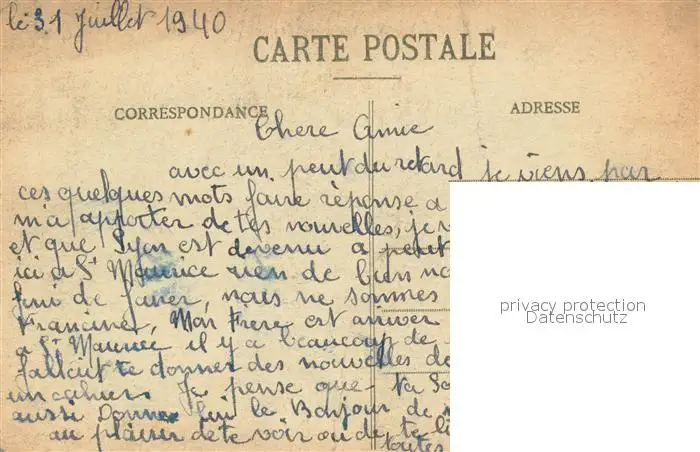 le 31 Juillet 1940
CARTE POSTALE
CORRESPONDANCE
ADRESSE
Chere Amie
avec un peut du retard je viens par
ces quelques mots faire réponse a
m'a apporter de tes nouvelles, je
et que Lyon est devenu a peut
ici a St Maurice rien de bien
fini de faner, nous ne sommes
Francine, Mon Frere est arriver
a St Maurice il y a beaucoup de
fallait te donner des nouvelles de
un cahier. Je pense que ta
aussi Donne lui le Bonjour de
au plaisir de te voir ou de te
toutes
privacy protection
Datenschutz